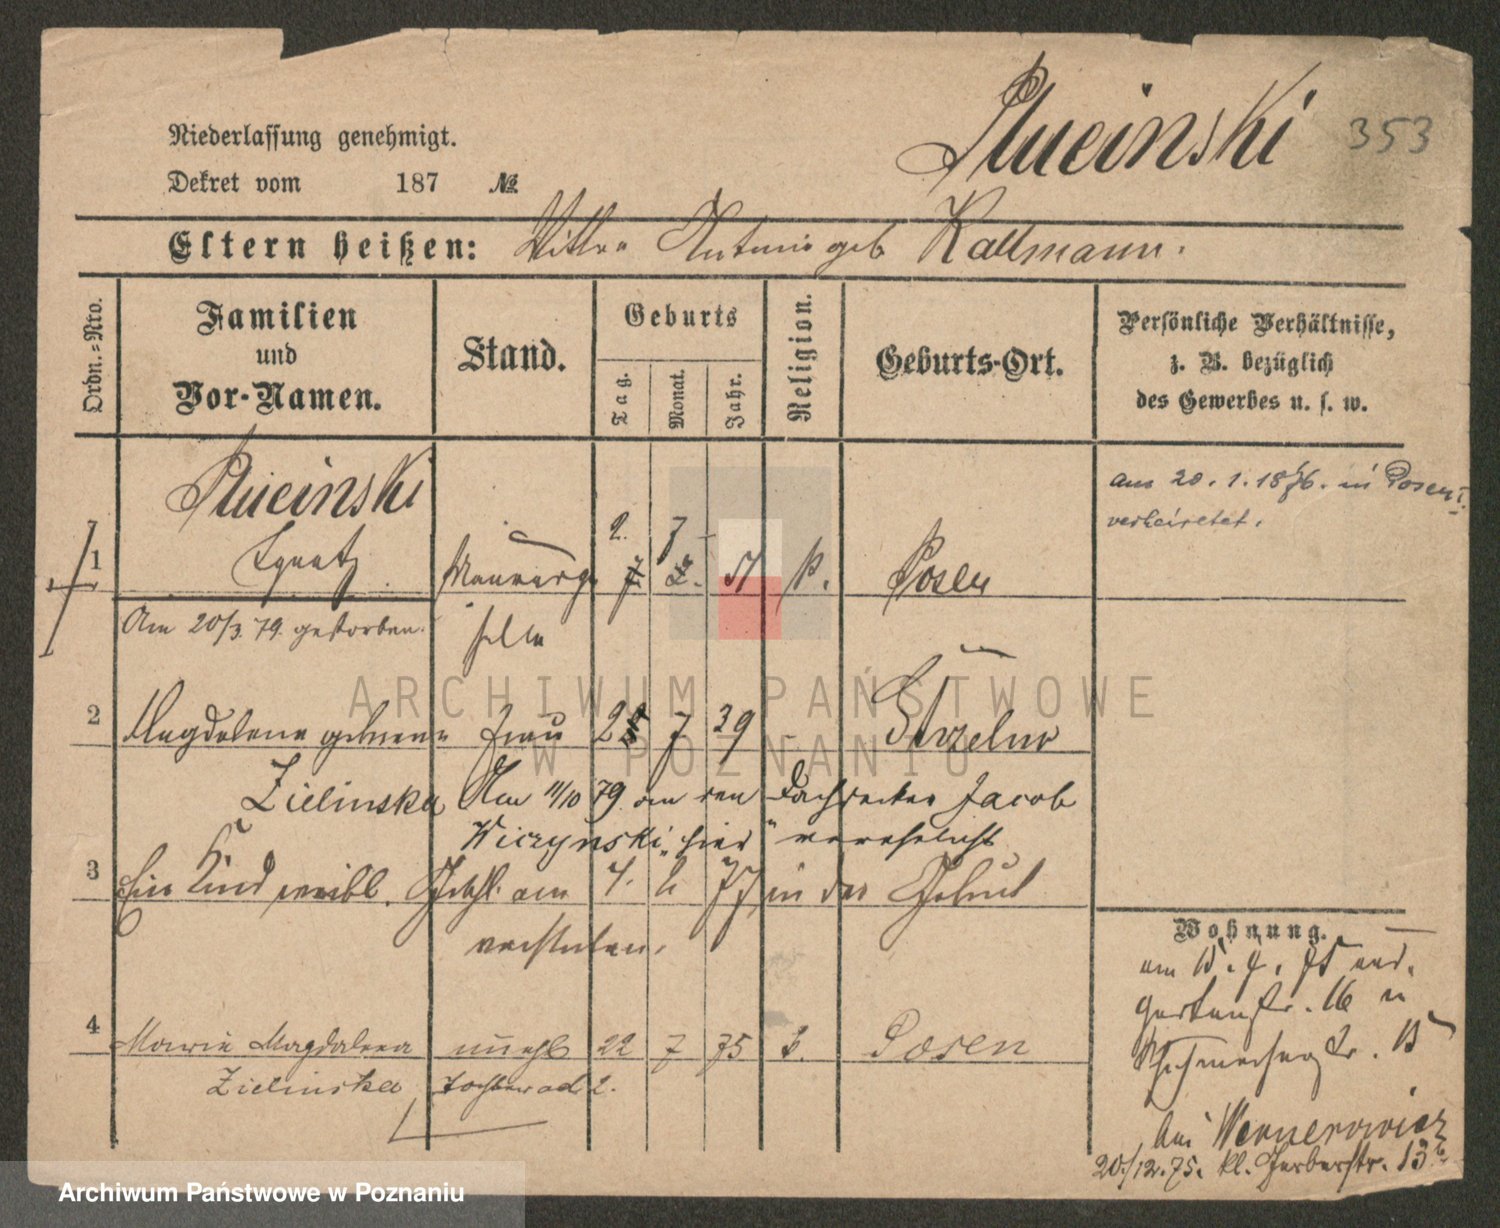 Plucinski 353
Niederlassung genehmigt.
Dekret vom 187 No.
Eltern heißen: Antonie geb Kallmann.
Ordn.-Nro.
Familien und Vor-Namen.
Stand.
Geburts
Tag. Monat. Jahr.
Religion.
Geburts-Ort.
Persönliche Verhältnisse,
z. B. bezüglich
des Gewerbes u. s. w.
Plucinski
am 20.1.1876. in Posen
verheiretet.
1 Ignatz Maurerge 2. 7 51 Posen
selle
Am 20/3.79. gestorben.
2 Magdalena geborene Frau 7 39 Strzelno
Zielinska Am 11/10 79 an den Dachdecker Jacob
Wiczynski hier verehelicht
3 Ein Kind weibl. Geschl. am 4. 2 77 in der Geburt
verstorben.
4 Maria Magdalena unehl 22 7 75 Posen
Zielinska Tochter ad 2.
Wohnung.
am 15. 4. 75
Gartenstr. 16
bei Wernerowicz
20./12.75. kl. Gerberstr. 13b
ARCHIWUM PAŃSTWOWE
W POZNANIU
Archiwum Państwowe w Poznaniu